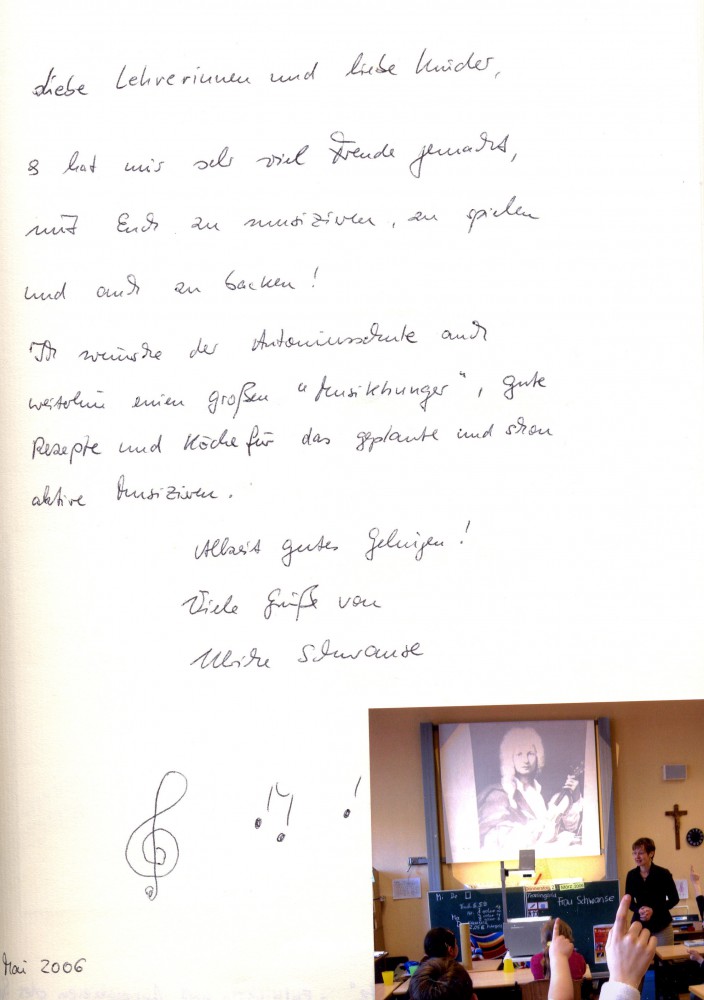 Liebe Lehrerinnen und liebe Kinder,
es hat mir sehr viel Freude gemacht,
mit Euch zu musizieren, zu spielen
und auch zu backen!
Ich wünsche der Antoniusschule auch
weiterhin einen großen "Musikhunger", gute
Rezepte und Köche für das geplante und schon
aktive Musizieren.
Allzeit gutes Gelingen!
Viele Grüße von
Ulrike Schwanse
Mai 2006
Mi Do
Frau Schwanse